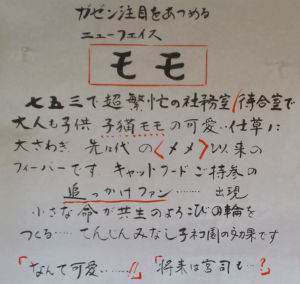 ガゼン注目をあつめる
ニューフェイス
モモ
七五三で超繁忙の社務室/待合室で
大人も子供 子猫モモの可愛い仕草に
大さわぎ 先代の〈メメ〉以来の
フィーバーです。キャットフードご持参の
追っかけファン……… 出現
小さな命が共生のよろこびの輪を
つくる…… てんじんみなし子和園の効果です
「なんて可愛……!!」「将来は宮司も…?」